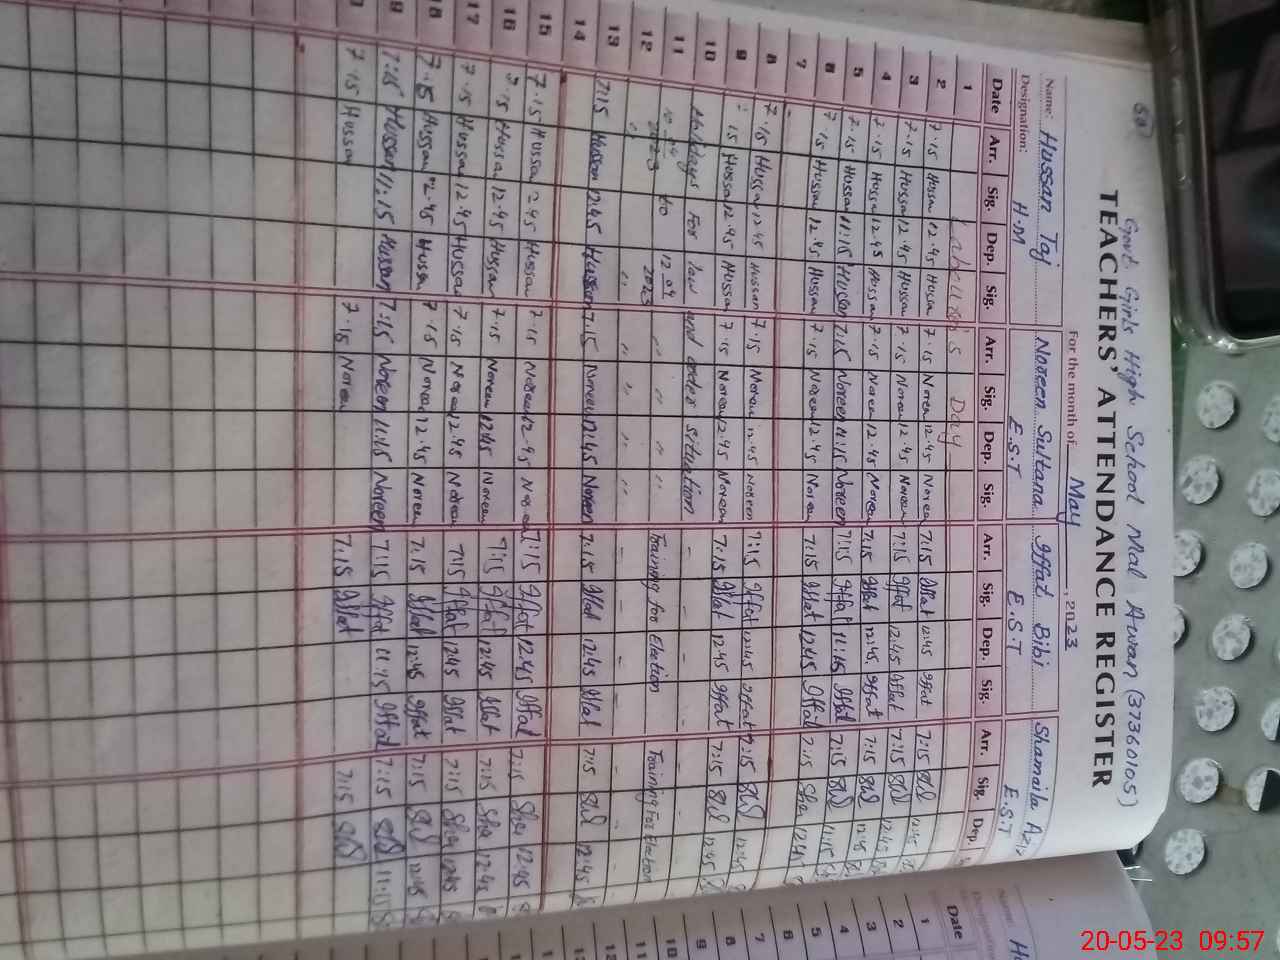 59
Govt. Girls High School Mal Awan (37360105)
TEACHERS' ATTENDANCE REGISTER
For the month of May, 2023
Name: Hussan Taj Noreen Sultana Iffat Bibi Shamaila Aziz
Designation: H.M E.S.T E.S.T E.S.T
Date Arr. Sig. Dep. Sig. Arr. Sig. Dep. Sig. Arr. Sig. Dep. Sig. Arr. Sig. Dep.
1 Labour's Day
2 7.15 Hussan 12.45 Hussan 7.15 Noreen 12.45 Noreen 7:15 Iffat 12:45 Iffat 7:15 12:45
3 7.15 Hussan 12.45 Hussan 7.15 Noreen 12.45 Noreen 7:15 Iffat 12:45 Iffat 7:15 12:45
4 7.15 Hussan 12.45 Hussan 7.15 Noreen 12.45 Noreen 7:15 Iffat 12:45 Iffat 7:15 12:45
5 7.15 Hussan 11:15 Hussan 7:15 Noreen 11:15 Noreen 7:15 Iffat 11:15 Iffat 7:15 11:15
6 7.15 Hussan 12.45 Hussan 7.15 Noreen 12.45 Noreen 7:15 Iffat 12:45 Iffat 7:15 Sha 12:45
7
8 7.15 Hussan 12.45 Hussan 7.15 Noreen 12.45 Noreen 7:15 Iffat 12:45 Iffat 7:15 12:45
9 15 Hussan 12.45 Hussan 7.15 Noreen 12.45 Noreen 7:15 Iffat 12:45 Iffat 7:15 12:45
10 Holidays For law and order situation
11 to Training for Election Training For Election
12
13 7:15 Hussan 12:45 Hussan 7:15 Noreen 12:45 Noreen 7:15 Iffat 12:45 Iffat 7:15 12:45
14
15 7.15 Hussan 2.45 Hussan 7.15 Noreen 12.45 Noreen 7:15 Iffat 12:45 Iffat 7:15 Sha 12:45
16 7.15 Hussan 12.45 Hussan 7.15 Noreen 12:45 Noreen 7:15 Iffat 12:45 Iffat 7:15 Sha 12:45
17 7.15 Hussan 12.45 Hussan 7.15 Noreen 12.45 Noreen 7:15 Iffat 12:45 Iffat 7:15 Sha 12:45
18 7.15 Hussan 2.45 Hussan 7.15 Noreen 12.45 Noreen 7:15 Iffat 12:45 Iffat 7:15 12:45
19 7:15 Hussan 11:15 Hussan 7:15 Noreen 11:15 Noreen 7:15 Iffat 11:15 Iffat 7:15 11:15
7.15 Hussan 7.15 Noreen 7:15 Iffat 7:15
Name:
Date
1
2
3
4
5
6
7
8
9
10
11
20-05-23 09:57